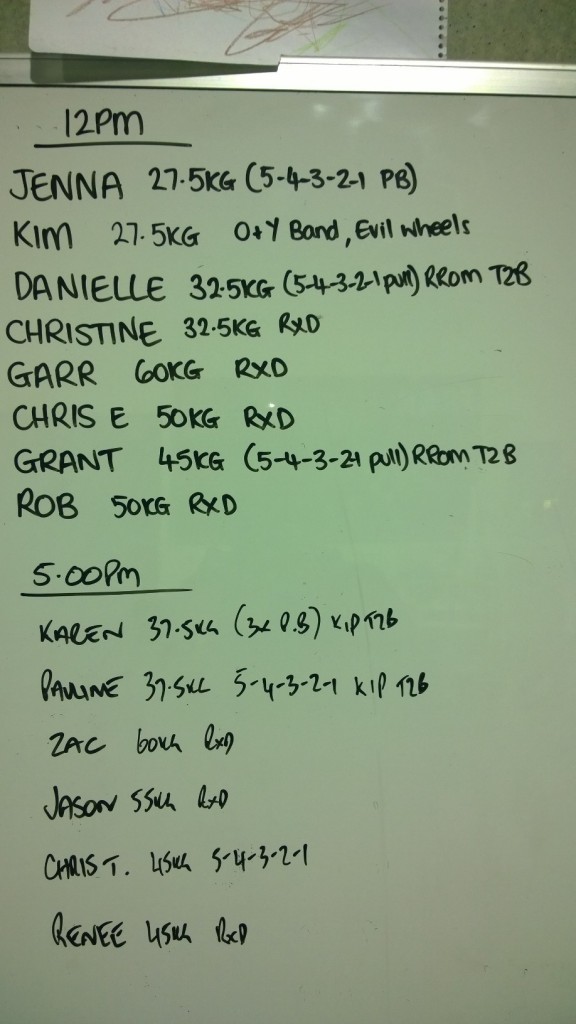 12PM
JENNA 27.5KG (5-4-3-2-1 PB)
KIM 27.5KG O+Y Band, Evil wheels
DANIELLE 32.5KG (5-4-3-2-1 pull) RRom T2B
CHRISTINE 32.5KG RxD
GARR 60KG RXD
CHRIS E 50KG RXD
GRANT 45KG (5-4-3-2-1 pull) RRom T2B
ROB 50KG RXD
5.00Pm
KAREN 37.5KG (3x P.B) KIP T2B
PAULINE 37.5KG 5-4-3-2-1 KIP T2B
ZAC 60KG RxD
JASON 55KG RxD
CHRIS T. 45KG 5-4-3-2-1
RENEE 45KG RxD